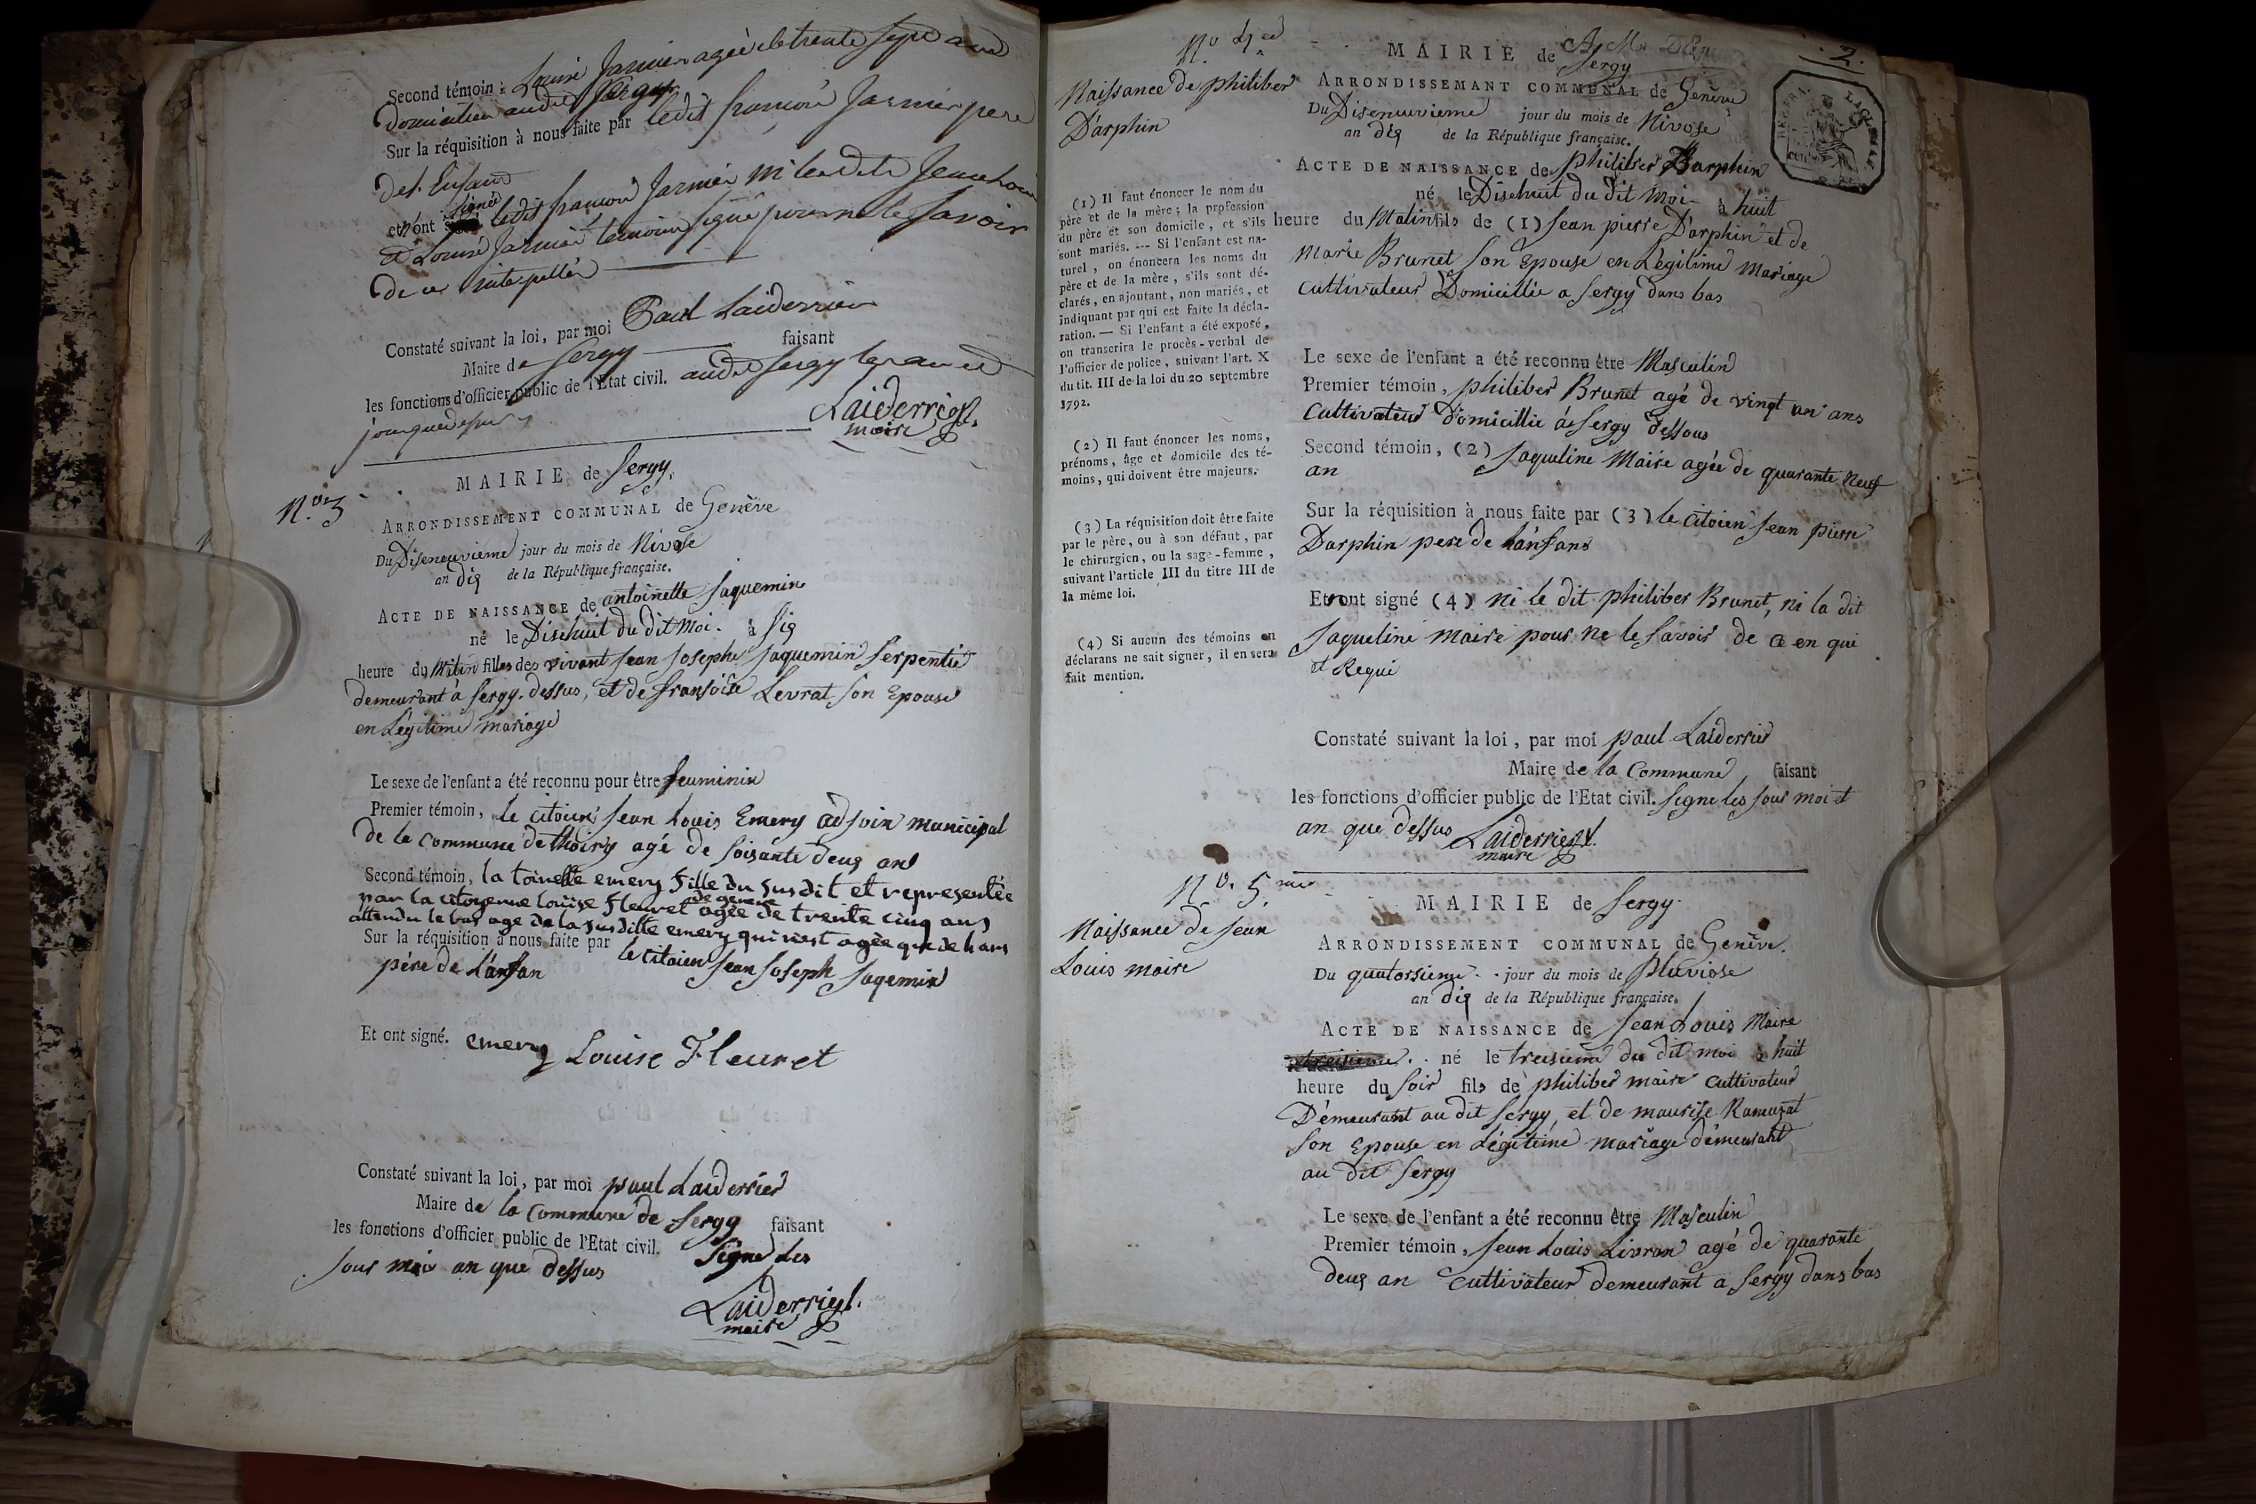 Second témoin : Louise Jasmin agèe de trente sept ans
domiciliee audit Sergy
Sur la réquisition à nous faite par ledit francois Jasmin pere
de l'Enfant
et n'ont signé ledit francois Jasmin ni
et Louise Jasmin temoins signé pour ne le savoir
de ce interpellés
Constaté suivant la loi, par moi Paul Laiderrier
Maire de Sergy faisant
les fonctions d'officier public de l'Etat civil. audit Sergy les an et
jour que dessus
Laiderrier
maire
N.o 3
MAIRIE de Sergy.
ARRONDISSEMENT COMMUNAL de Genève
Du Diseneuvieme jour du mois de Nivose
an dix de la République française.
ACTE DE NAISSANCE de antoinette Jaquemin
né le Disehuit du dit Moi. à six
heure du Matin filles des vivant Jean Josephe Jaquemin Serpentié
demeurant à Sergy. dessus, et de fransoise Levrat son Epouse
en Légitime mariage
Le sexe de l'enfant a été reconnu pour être feuminin
Premier témoin, le citoien Jean Louis Emery adjoin municipal
de le commune de Thoiry agé de soisante deux ans
Second témoin, la toinette emery fille du susdit et representée
par la citoyenne louise fleuret de geneve agèe de trente cinq ans
attendu le bas age de la susditte emery qui n'est agèe que de 4 ans
Sur la réquisition à nous faite par le citoien Jean Joseph Jaqemin
pére de l'anfan
Et ont signé. emery Louise Fleuret
Constaté suivant la loi, par moi paul Laiderrier
Maire de la commune de Sergy faisant
les fonctions d'officier public de l'Etat civil. Signe les
Jour moi an que dessus
Laiderrier
maire
2.
N.o 4
Naissance de philiber
D'arphin
MAIRIE de Sergy
ARRONDISSEMANT COMMUNAL de Genève
Du Diseneuvieme jour du mois de Nivose
an dix de la République française.
ACTE DE NAISSANCE de philiber Darphin
né le Disehuit du dit Moi - à huit
heure du Matin fils de (1) Jean pierre D'arphin et de
Marie Brunet son Epouse en Légitime Mariage
Cultivateur Domicillié a Sergy dans bas
(1) Il faut énoncer le nom du
père et de la mère; la profession
du père et son domicile, et s'ils
sont mariés. --- Si l'enfant est na-
turel, on énoncera les noms du
père et de la mère, s'ils sont dé-
clarés, en ajoutant, non mariés, et
indiquant par qui est faite la décla-
ration. — Si l'enfant a été exposé,
on transcrira le procès-verbal de
l'officier de police, suivant l'art. X
du tit. III de la loi du 20 septembre
1792.
(2) Il faut énoncer les noms,
prénoms, âge et domicile des té-
moins, qui doivent être majeurs.
(3) La réquisition doit être faite
par le père, ou à son défaut, par
le chirurgien, ou la sage-femme,
suivant l'article III du titre III de
la même loi.
(4) Si aucun des témoins ou
déclarans ne sait signer, il en sera
fait mention.
Le sexe de l'enfant a été reconnu être Masculin
Premier témoin, philiber Brunet agé de vingt un ans
Cultivateur D'omicillié á Sergy dessous
Second témoin, (2) Jaqueline Maire agée de quarante neuf
an
Sur la réquisition à nous faite par (3) le citoien Jean pierre
Darphin pere de l'anfans
Et ont signé (4) ni le dit philiber Brunet, ni la dit
Jaqueline maire pour ne le savoir de ce en qui
et Requi
Constaté suivant la loi, par moi paul Laiderrier
Maire de la Commune faisant
les fonctions d'officier public de l'Etat civil. Signe les Jour moi et
an que dessus Laiderrier
maire
N.o 5.me
Naissance de Jean
Louis maire
MAIRIE de Sergy.
ARRONDISSEMENT COMMUNAL de Genève.
Du quatorsieme jour du mois de pluviose
an dix de la République française.
ACTE DE NAISSANCE de Jean Louis Maire
né le treisieme du dit moi à huit
heure du soir fils de philiber maire cultivateur
Démeurant au dit Sergy, et de maurise Ramuzat
son Epouse en Légitime mariage démeurant
au dit Sergy
Le sexe de l'enfant a été reconnu être Masculin
Premier témoin, Jean Louis Livran agé de quarante
deux an cultivateur demeurant a Sergy dans bas